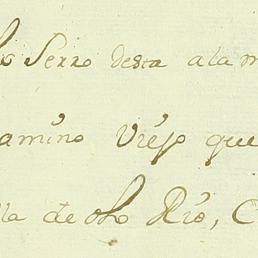 Serro desta a la m
amino Viejo que
lla de dho Rio, C